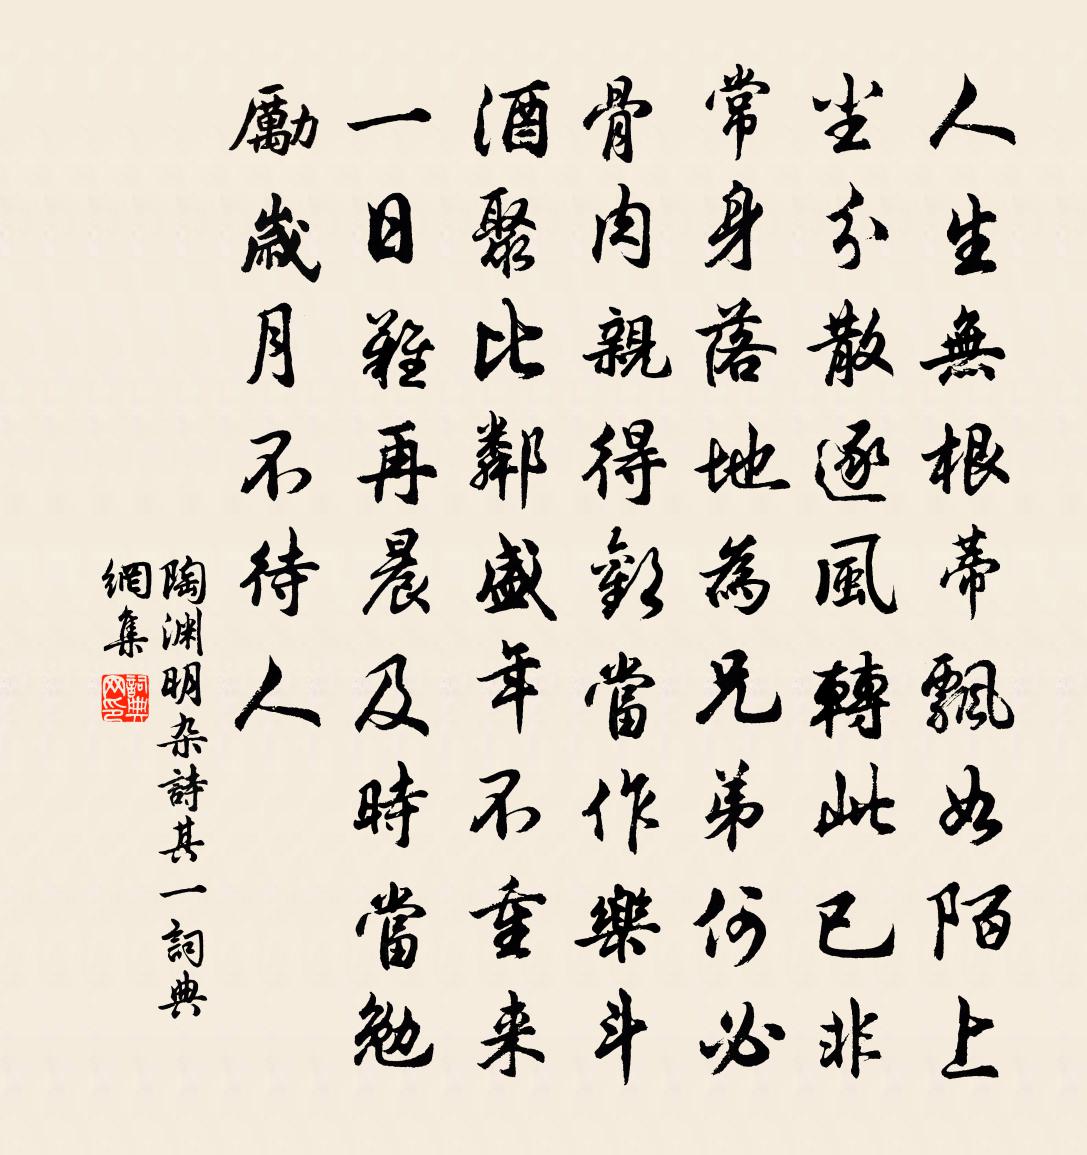 人生無根蒂飄如陌上
尘分散逐風轉此已非
常身落地為兄弟何必
骨肉親得歡當作樂斗
酒聚比鄰盛年不重来
一日難再晨及時當勉
勵歲月不待人
陶渊明杂詩其一詞典
網集
詞典
网印